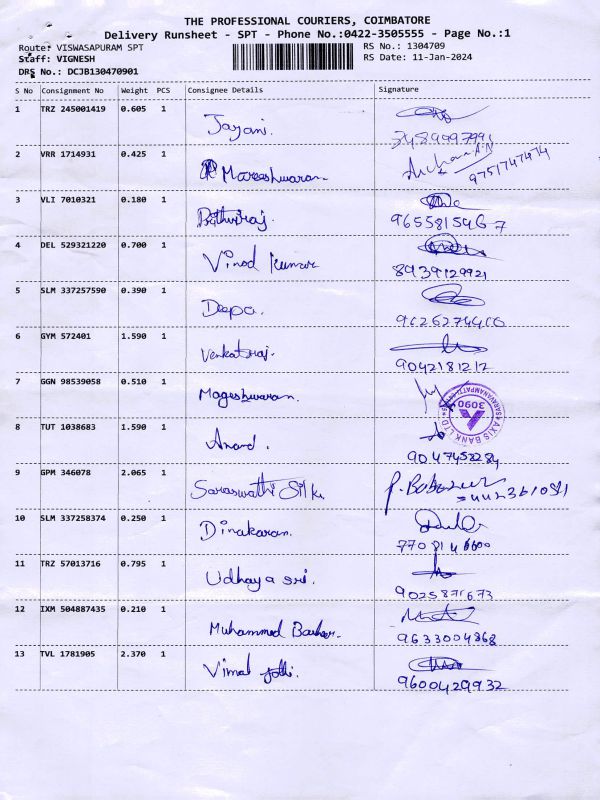 THE PROFESSIONAL COURIERS, COIMBATORE
Delivery Runsheet - SPT - Phone No.:0422-3505555 - Page No.:1
Route: VISWASAPURAM SPT
RS No.: 1304709
Staff: VIGNESH
RS Date: 11-Jan-2024
DRS No.: DCJB130470901
S No Consignment No Weight PCS Consignee Details Signature
1 TRZ 245001419 0.605 1
Jayani.
2 VRR 1714931 0.425 1
Mareeshwaran. 9751747474
3 VLI 7010321 0.180 1
Prithviraj. 9655815467
4 DEL 529321220 0.700 1
Vinod Kumar 8939129921
5 SLM 337257590 0.390 1
Deepa.
6 GYM 572401 1.590 1
Venkatraj. 9042181212
7 GGN 98539058 0.510 1
Mageshwaran.
AXIS BANK LTD
SARAVANAMPATTI
3090
8 TUT 1038683 1.590 1
Anand. 9047452284
9 GPM 346078 2.065 1
Saraswathi Silks
10 SLM 337258374 0.250 1
Dinakaran. 7708146600
11 TRZ 57013716 0.795 1
Udhaya sri. 9025871673
12 IXM 504887435 0.210 1
Muhammed 9633004868
13 TVL 1781905 2.370 1
Vimal Jothi. 9600429932